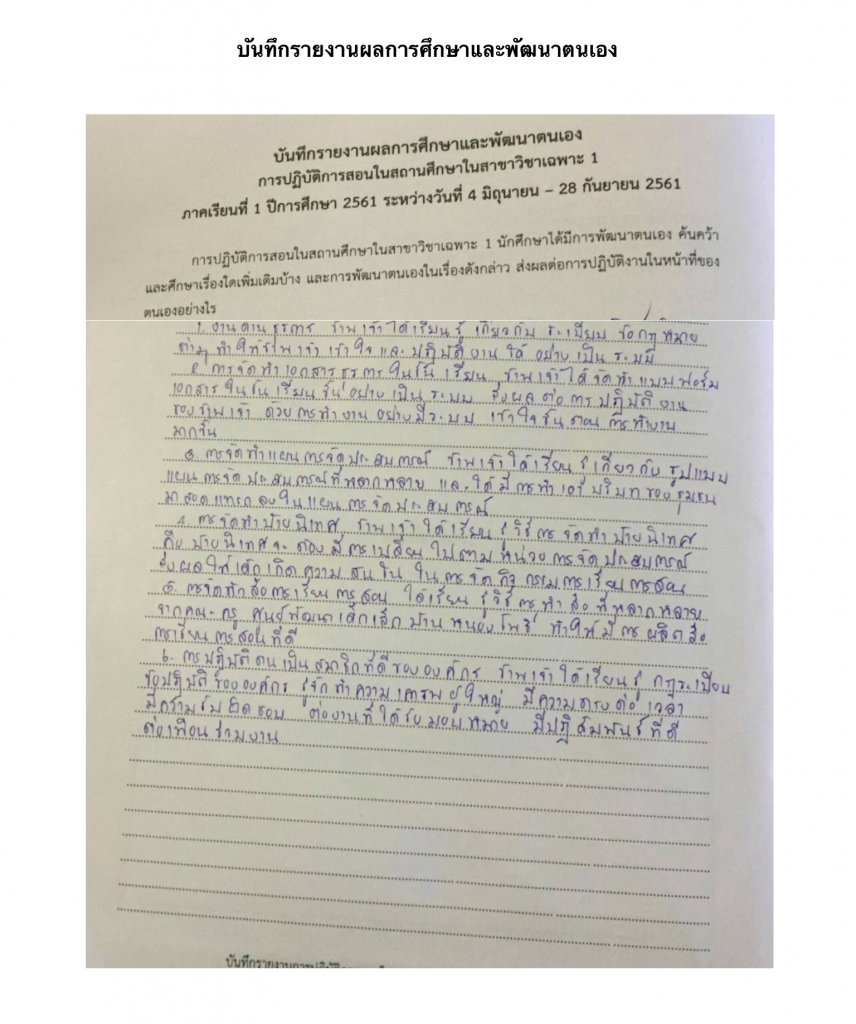 บันทึกรายงานผลการศึกษาและพัฒนาตนเอง
บันทึกรายงานผลการศึกษาและพัฒนาตนเอง
การปฏิบัติการสอนในสถานศึกษาในสาขาวิชาเฉพาะ 1
ภาคเรียนที่ 1 ปีการศึกษา 2561 ระหว่างวันที่ 4 มิถุนายน – 28 กันยายน 2561
การปฏิบัติการสอนในสถานศึกษาในสาขาวิชาเฉพาะ 1 นักศึกษาได้มีการพัฒนาตนเอง ค้นคว้า
และศึกษาเรื่องใดเพิ่มเติมบ้าง และการพัฒนาตนเองในเรื่องดังกล่าว ส่งผลต่อการปฏิบัติงานในหน้าที่ของ
ตนเองอย่างไร
1. งานด้านธุรการ ข้าพเจ้าได้เรียนรู้ เกี่ยวกับ ระเบียบ ข้อกฎหมาย
ต่างๆ ทำให้ข้าพเจ้า เข้าใจและ ปฏิบัติงานได้ อย่างเป็นระบบ
2. การจัดทำเอกสารธุรการในชั้นเรียน ข้าพเจ้าได้จัดทำแบบฟอร์ม
เอกสารในชั้นเรียนขึ้นอย่างเป็นระบบ ส่งผลต่อการปฏิบัติงาน
ของข้าพเจ้า ด้วยการทำงานอย่างมีระบบ เข้าใจขั้นตอนการทำงาน
มากขึ้น
3. การจัดทำแผนการจัดประสบการณ์ ข้าพเจ้าได้เรียนรู้เกี่ยวกับ รูปแบบ
แผนการจัดประสบการณ์ที่หลากหลาย และได้มีการทำเอาบริบทของชุมชน
มาสอดแทรกลงในแผนการจัดประสบการณ์
4. การจัดทำป้ายนิเทศ ข้าพเจ้าได้เรียนรู้วิธีการจัดทำป้ายนิเทศ
คือ ป้ายนิเทศจะต้องมีการเปลี่ยนไปตามหน่วยการจัดประสบการณ์
ส่งผลให้เด็กเกิดความสนใจ ในการจัดกิจกรรมการเรียนการสอน
5. การจัดทำสื่อการเรียนการสอน ได้เรียนรู้วิธีการทำสื่อที่หลากหลาย
จากคณะครู ศูนย์พัฒนาเด็กเล็กบ้านหนองโพธิ์ ทำให้มีการผลิตสื่อ
การเรียนการสอนที่ดี
6. การปฏิบัติตนเป็นสมาชิกที่ดีขององค์กร ข้าพเจ้าได้เรียนรู้ กฎระเบียบ
ข้อปฏิบัติขององค์กร รู้จักทำความเคารพผู้ใหญ่ มีความตรงต่อเวลา
มีความรับผิดชอบ ต่องานที่ได้รับมอบหมาย มีปฏิสัมพันธ์ที่ดี
ต่อเพื่อนร่วมงาน